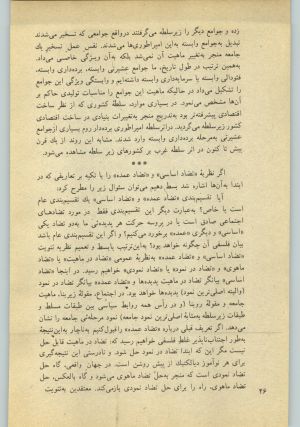 زده و جوامع دیگر را زیرسلطه می‌گرفتند درواقع جوامعی که تسخیر می‌شدند
تبدیل به‌جوامع وابسته به‌این امپراطوری‌ها می‌شدند. نفس عمل تسخیر یك
جامعه منجر به‌تغییر ماهیت آن نمی‌شد بلکه به‌آن ویـژگی خاصـی می‌داد.
به‌همین ترتیب در طول تاریخ، ما جوامع عشیرتی وابسته، برده‌داری وابسته،
فئودالی وابسته یا سرمایه‌داری وابسته داشته‌ایم و وابستگی ویژگی این جوامع
را تشکیل می‌داد در حالیکه ماهیت این جوامع را مناسبات تولیدی حاکم بر
آن‌ها مشخص می‌نمود. در بسیاری موارد، سلطه کشوری که از نظر ساخت
اقتصادی پیشرفته‌تر بود به‌تدریج منجر به‌تغییرات بنیادی در ساخت اقتصادی
کشور زیرسلطه می‌گردید. دراثرسلطه امپراطوری برده‌دار روم بسیاری ازجوامع
عشیرتی به‌مرحله برده‌داری وابسته وارد شدند. مشابه این روند از یك قرن
پیش تا کنون در اثر سلطه غرب بر کشورهای زیر سلطه مشاهده می‌شود.
***
اگر نظریهٔ «تضاد اساسی» و «تضاد عمده» را با تکیه بر تعاریفی که در
ابتدا به‌آن‌ها اشاره شد بسط دهیم می‌توان سئوال زیر را مطرح کرد.
آیا تقسیم‌بندی «تضاد عمده» و «تضاد اساسی» یك تقسیم‌بندی عام
است یا خاص؟ به‌عبارت دیگر این تقسیم‌بندی فقط در مورد تضادهـای
اجتماعی صادق است یا در پروسه حرکت هر پدیده‌ئی ما به‌دو تضاد یکی
«اساسی» و دیگری «عمده» برخورد می‌کنیم؟ و اگر این تقسیم‌بندی عام باشد
بیان فلسفی آن چگونه خواهد بود؟ به‌این‌ترتیب بابسط و تعمیم نظریه ثنویت
«تضاد اساسی» و «تضاد عمده» به‌نظریهٔ عمومی «تضاد در ماهیت» یا «تضاد
ماهوی» و «تضاد در نمود» یا «تضاد نمودی» خواهیم رسید. در اینجا «تضاد
اساسی» بیانگر تضاد در ماهیت پدیده‌ها و «تضاد عمده» بیانگر تضاد در نمود
(والبته اصلی‌ترین نمود) پدیده‌ها خواهد بود. در اجتماع، مقولهٔ زیربنا، ماهیت
جامعه و مقولهٔ روبنا (و در رأس همه روابط سیاسی بین طبقات مسلط و
طبقات زیرسلطه به‌مثابهٔ اصلی‌ترین نمود جامعه) نمود مرحله‌ئی جامعه را نشان
می‌دهد. اگر تعریف قبلی درباره «تضاد عمده» راقبول‌کنیم به‌ناچار به‌این‌نتیجهٔ
به‌طور اجتناب‌ناپذیر غلط فلسفی خواهیم رسید که: تضاد در ماهیت قابل حل
نیست مگر این که ابتدا تضاد در نمود حل شود. و نادرستی این نتیجه‌گیری
برای هر نوآموز دیالکتیك از پیش روشن است. در جهان واقعی، گاه حل
تضاد نمودی است که منجر به‌حل تضاد ماهوی می‌شود و گاه بالعکس، حل
تضاد ماهوی، راه را برای حل تضاد نمودی بازمی‌کند. معتقدین به‌ثنویت
۲۶